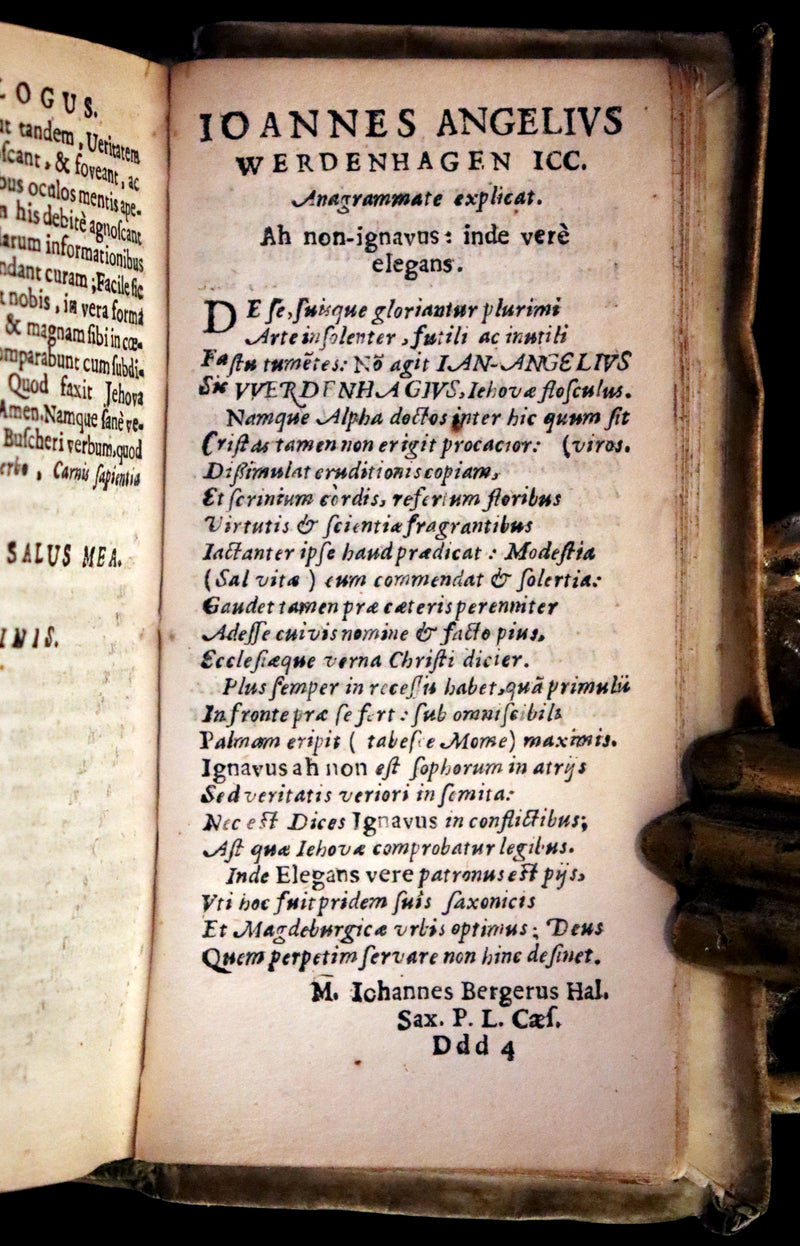 LOGUS.
ut tandem, Ueritatem
scant, & foveant, ac
bus oculos mentis ape-
n his debitè agnoscant
arum informationibus
ndant curam; Facile sic
nobis, in vera forma
& magnam sibi in cœ-
mparabunt cum subdi-
Quod faxit Jehova
Amen. Namque sanè ve-
Buscheri verbum, quod
, Carnis sapientia
SALUS MEA.
INIS.
IOANNES ANGELIVS
WERDENHAGEN ICC.
Anagrammate explicat.
Ah non-ignavus: inde verè
elegans.
DE se, suisque gloriantur plurimi
Arte insolenter, futili ac inutili
Fastu tumẽtes: Nõ agit IAN-ANGELIVS
Sic VVERDENHAGIVS, Iehovæ flosculus.
Namque Alpha doctos inter hic quum sit
Cristas tamen non erigit procacior: (viros.
Dißimulat eruditionis copiam,
Et scrinium cordis, refertum floribus
Virtutis & scientiæ fragrantibus
Iactanter ipse haud prædicat: Modestia
(Sal vitæ) eum commendat & solertia:
Gaudet tamen præ cæteris perenniter
Adesse cuivis nomine & facto pius,
Ecclesiæque verna Christi dicier.
Plus semper in recessu habet, quã primulũ
In fronte præ se fert: sub omni scibili
Palmam eripit ( tabesce Mome) maximis.
Ignavus ah non est sophorum in atrijs
Sed veritatis veriori in semita:
Nec est Dices Ignavus in conflictibus;
Ast quæ Iehovæ comprobatur legibus.
Inde Elegans vere patronus est pijs,
Vti hoc fuit pridem suis saxonicis
Et Magdeburgicæ vrbis optimus; Deus
Quem perpetim servare non hinc desinet.
M. Iohannes Bergerus Hal.
Sax. P. L. Cæs.
Ddd 4